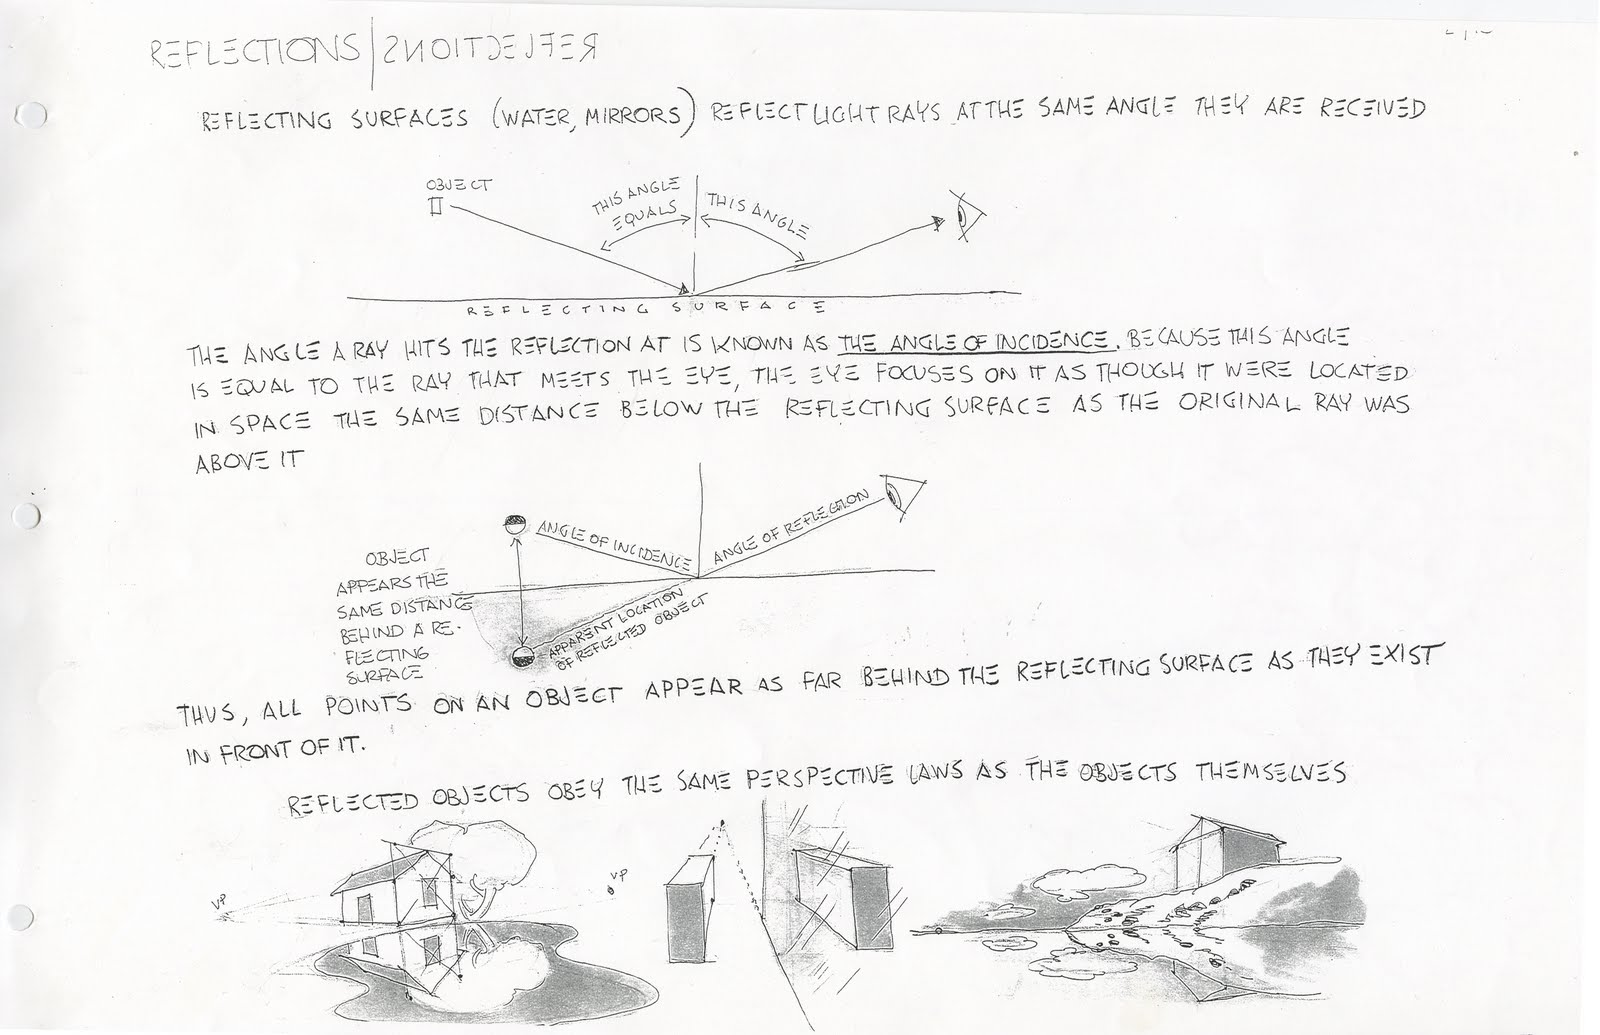 REFLECTIONS | REFLECTIONS
REFLECTING SURFACES (WATER, MIRRORS) REFLECT LIGHT RAYS AT THE SAME ANGLE THEY ARE RECEIVED
OBJECT
THIS ANGLE
EQUALS
THIS ANGLE
REFLECTING SURFACE
THE ANGLE A RAY HITS THE REFLECTION AT IS KNOWN AS THE ANGLE OF INCIDENCE. BECAUSE THIS ANGLE
IS EQUAL TO THE RAY THAT MEETS THE EYE, THE EYE FOCUSES ON IT AS THOUGH IT WERE LOCATED
IN SPACE THE SAME DISTANCE BELOW THE REFLECTING SURFACE AS THE ORIGINAL RAY WAS
ABOVE IT
ANGLE OF INCIDENCE
ANGLE OF REFLECTION
OBJECT
APPEARS THE
SAME DISTANCE
BEHIND A RE-
FLECTING
SURFACE
APPARENT LOCATION
OF REFLECTED OBJECT
THUS, ALL POINTS ON AN OBJECT APPEAR AS FAR BEHIND THE REFLECTING SURFACE AS THEY EXIST
IN FRONT OF IT.
REFLECTED OBJECTS OBEY THE SAME PERSPECTIVE LAWS AS THE OBJECTS THEMSELVES
VP
VP